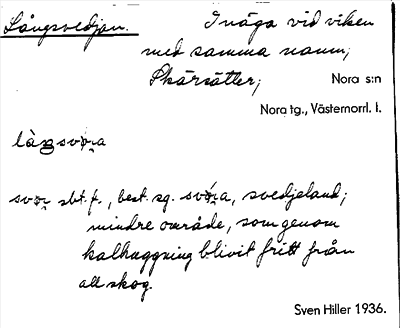 Långsvedjan. Inäga vid viken
med samma namn;
Skärsätter; Nora s:n
Nora tg., Västernorrl. l.
làŋsvø̜̀ra
svør sbt. f., best. sg. svǿ̜ra, svedjeland;
mindre område, som genom
kalhuggning blivit fritt från
all skog.
Sven Hiller 1936.